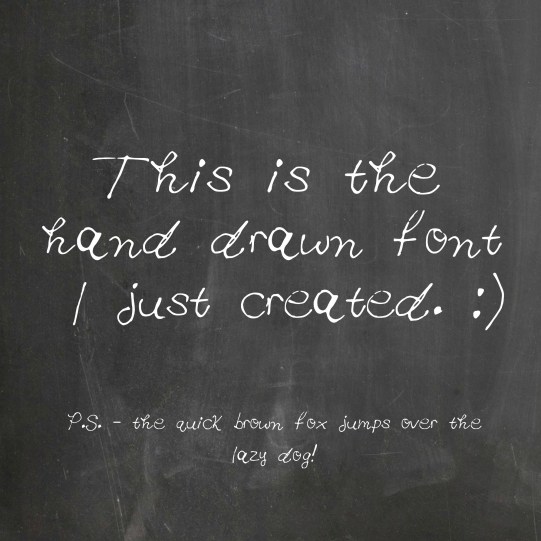 This is the
hand drawn font
I just created. :)
P.S. - the quick brown fox jumps over the
lazy dog!